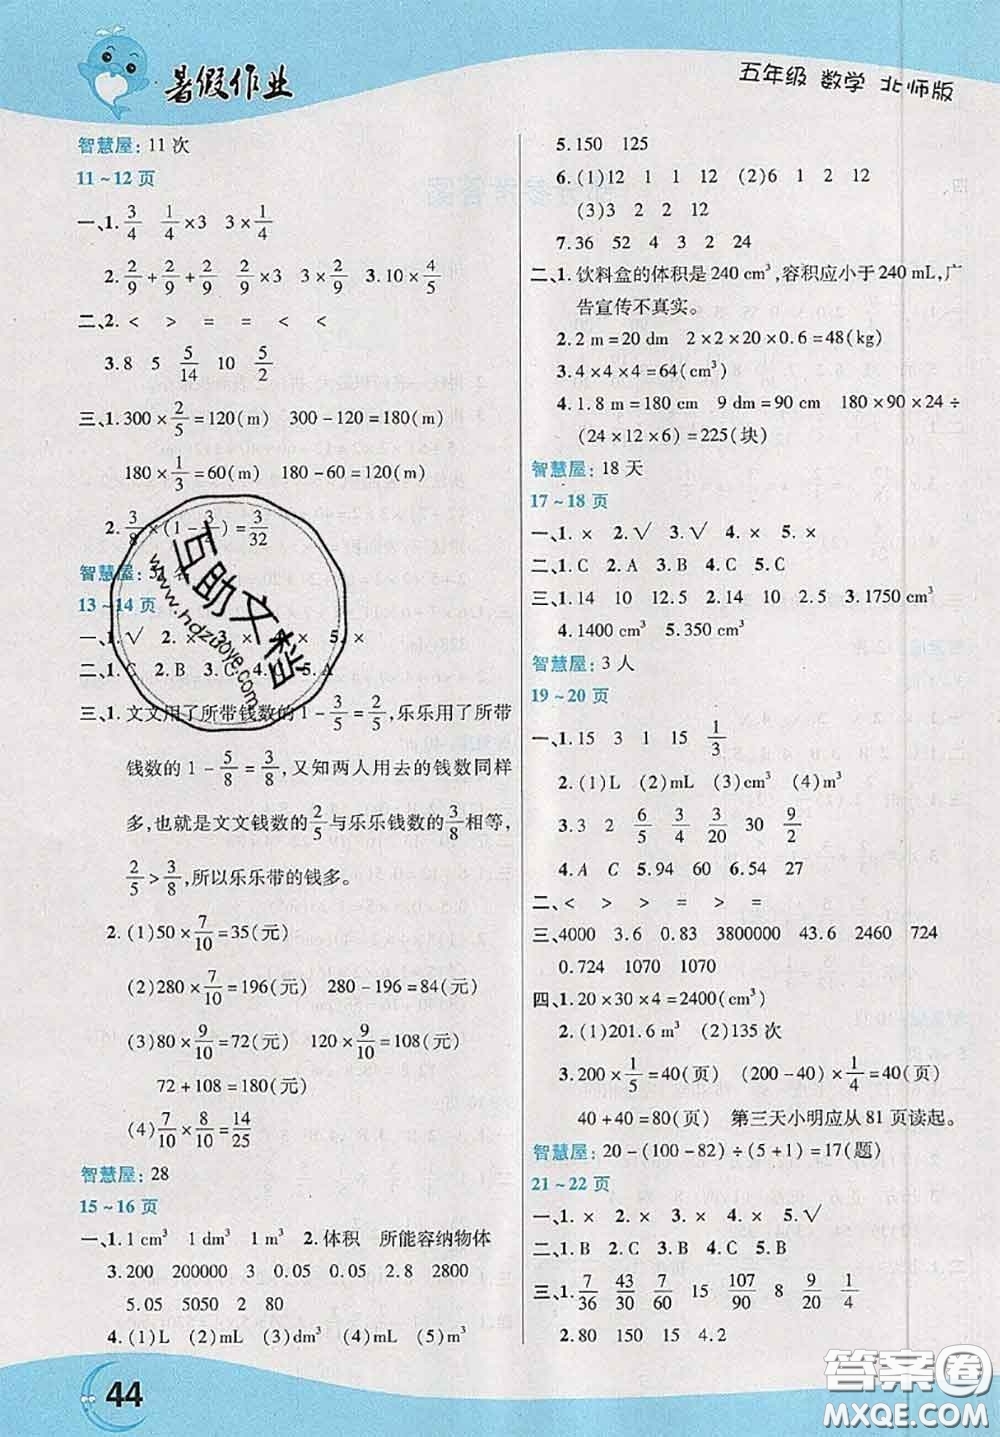 暑假作业
五年级 数学 北师版
智慧屋: 11 次
11~12 页
一、1. 3/4 1/4×3 3×1/4
2. 2/9+2/9+2/9 2/9×3 3×2/9 3. 10×4/5
二、2. < > = = < <
3. 8 5 5/14 10 5/2
三、1. 300×2/5=120(m) 300-120=180(m)
180×1/3=60(m) 180-60=120(m)
2. 3/8×(1-3/4)=3/32
智慧屋:
13~14 页
一、1. √ 2. × 3. × 4. × 5. ×
二、1. C 2. B 3. C 4. C 5. A
三、1. 文文用了所带钱数的1-3/5=2/5,乐乐用了所带
钱数的1-5/8=3/8,又知两人用去的钱数同样
多,也就是文文钱数的2/5与乐乐钱数的3/8相等,
2/5>3/8,所以乐乐带的钱多。
2. (1)50×7/10=35(元)
(2)280×7/10=196(元) 280-196=84(元)
(3)80×9/10=72(元) 120×9/10=108(元)
72+108=180(元)
(4)7/10×8/10=14/25
智慧屋: 28
15~16 页
一、1. 1 cm³ 1 dm³ 1 m³ 2. 体积 所能容纳物体
3. 200 200000 3 0.05 0.05 2.8 2800
5.05 5050 2 80
4. (1)L (2)mL (3)dm³ (4)m³ (5)mL
44
5. 150 125
6. (1)12 1 1 12 (2)6 1 2 12
(3)3 2 2 12
7. 36 52 4 3 2 24
二、1. 饮料盒的体积是 240 cm³,容积应小于 240 mL,广
告宣传不真实。
2. 2 m=20 dm 2×2×20×0.6=48(kg)
3. 4×4×4=64(cm³)
4. 1.8 m=180 cm 9 dm=90 cm 180×90×24÷
(24×12×6)=225(块)
智慧屋: 18 天
17~18 页
一、1. × 2. √ 3. √ 4. × 5. ×
二、1. C 2. A 3. B 4. C 5. C
三、1. 14 10 12.5 2. 14 10 12.5 3. 1750 cm³
4. 1400 cm³ 5. 350 cm³
智慧屋: 3 人
19~20 页
一、1. 15 3 1 15 1/3
2. (1)L (2)mL (3)cm³ (4)m³
3. 3 2 6/5 3/4 3/20 30 9/2
4. A C 5. 94 6. 54 27
二、< > > = > =
三、4000 3.6 0.83 3800000 43.6 2460 724
0.724 1070 1070
四、1. 20×30×4=2400(cm³)
2. (1)201.6 m³ (2)135 次
3. 200×1/5=40(页) (200-40)×1/4=40(页)
40+40=80(页) 第三天小明应从 81 页读起。
智慧屋: 20-(100-82)÷(5+1)=17(题)
21~22 页
一、1. × 2. × 3. × 4. × 5. √
二、1. B 2. B 3. B 4. C 5. B
三、1. 7/36 43/30 7/6 15 107/90 8/20 9 1/4
2. 80 150 15 4.2
互助文档
www.hdzuoye.com
答案圈
MXQE.COM